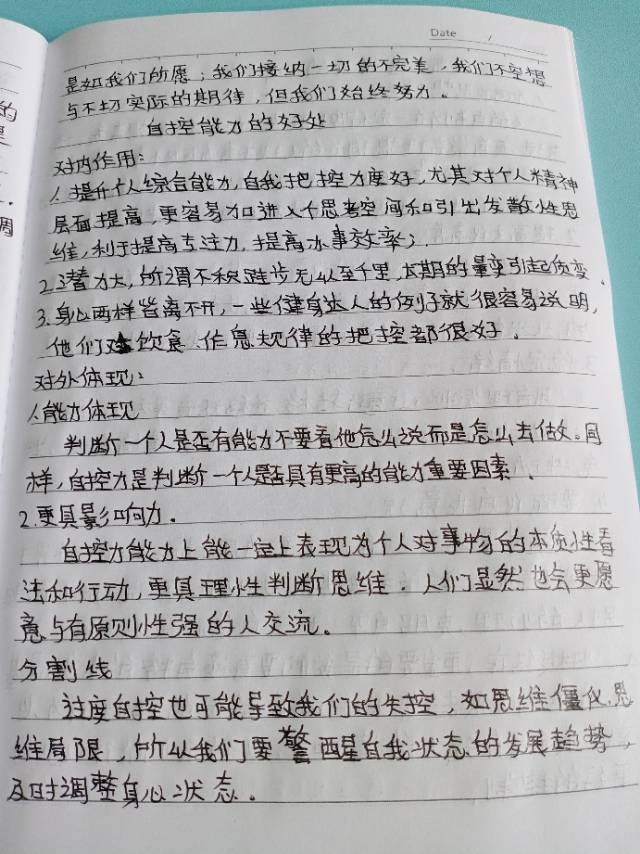 Date /
是如我们所愿；我们接纳一切的不完美，我们不空想
与不切实际的期待，但我们始终努力。
自控能力的好处
对内作用：
1.提升个人综合能力，自我把控力度好，尤其对个人精神
层面提高，更容易加进入个思考空间和引出发散性思
维，利于提高专注力，提高办事效率；
2.潜力大，所谓不积跬步无以至千里，长期的量变引起质变。
3.身心两样皆离不开，一些健身达人的例子就很容易说明，
他们对饮食、作息规律的把控都很好。
对外体现：
1.能力体现
判断一个人是否有能力不要看他怎么说而是怎么去做。同
样，自控力是判断一个人是否具有更高的能力重要因素。
2.更具影响力。
自控力能力上能一定上表现为个人对事物的本质性看
法和行动，更具理性判断思维。人们显然也会更愿
意与有原则性强的人交流。
分割线
过度自控也可能导致我们的失控，如思维僵化，思
维局限，所以我们要警醒自我状态的发展趋势，
及时调整身心状态。
的
调